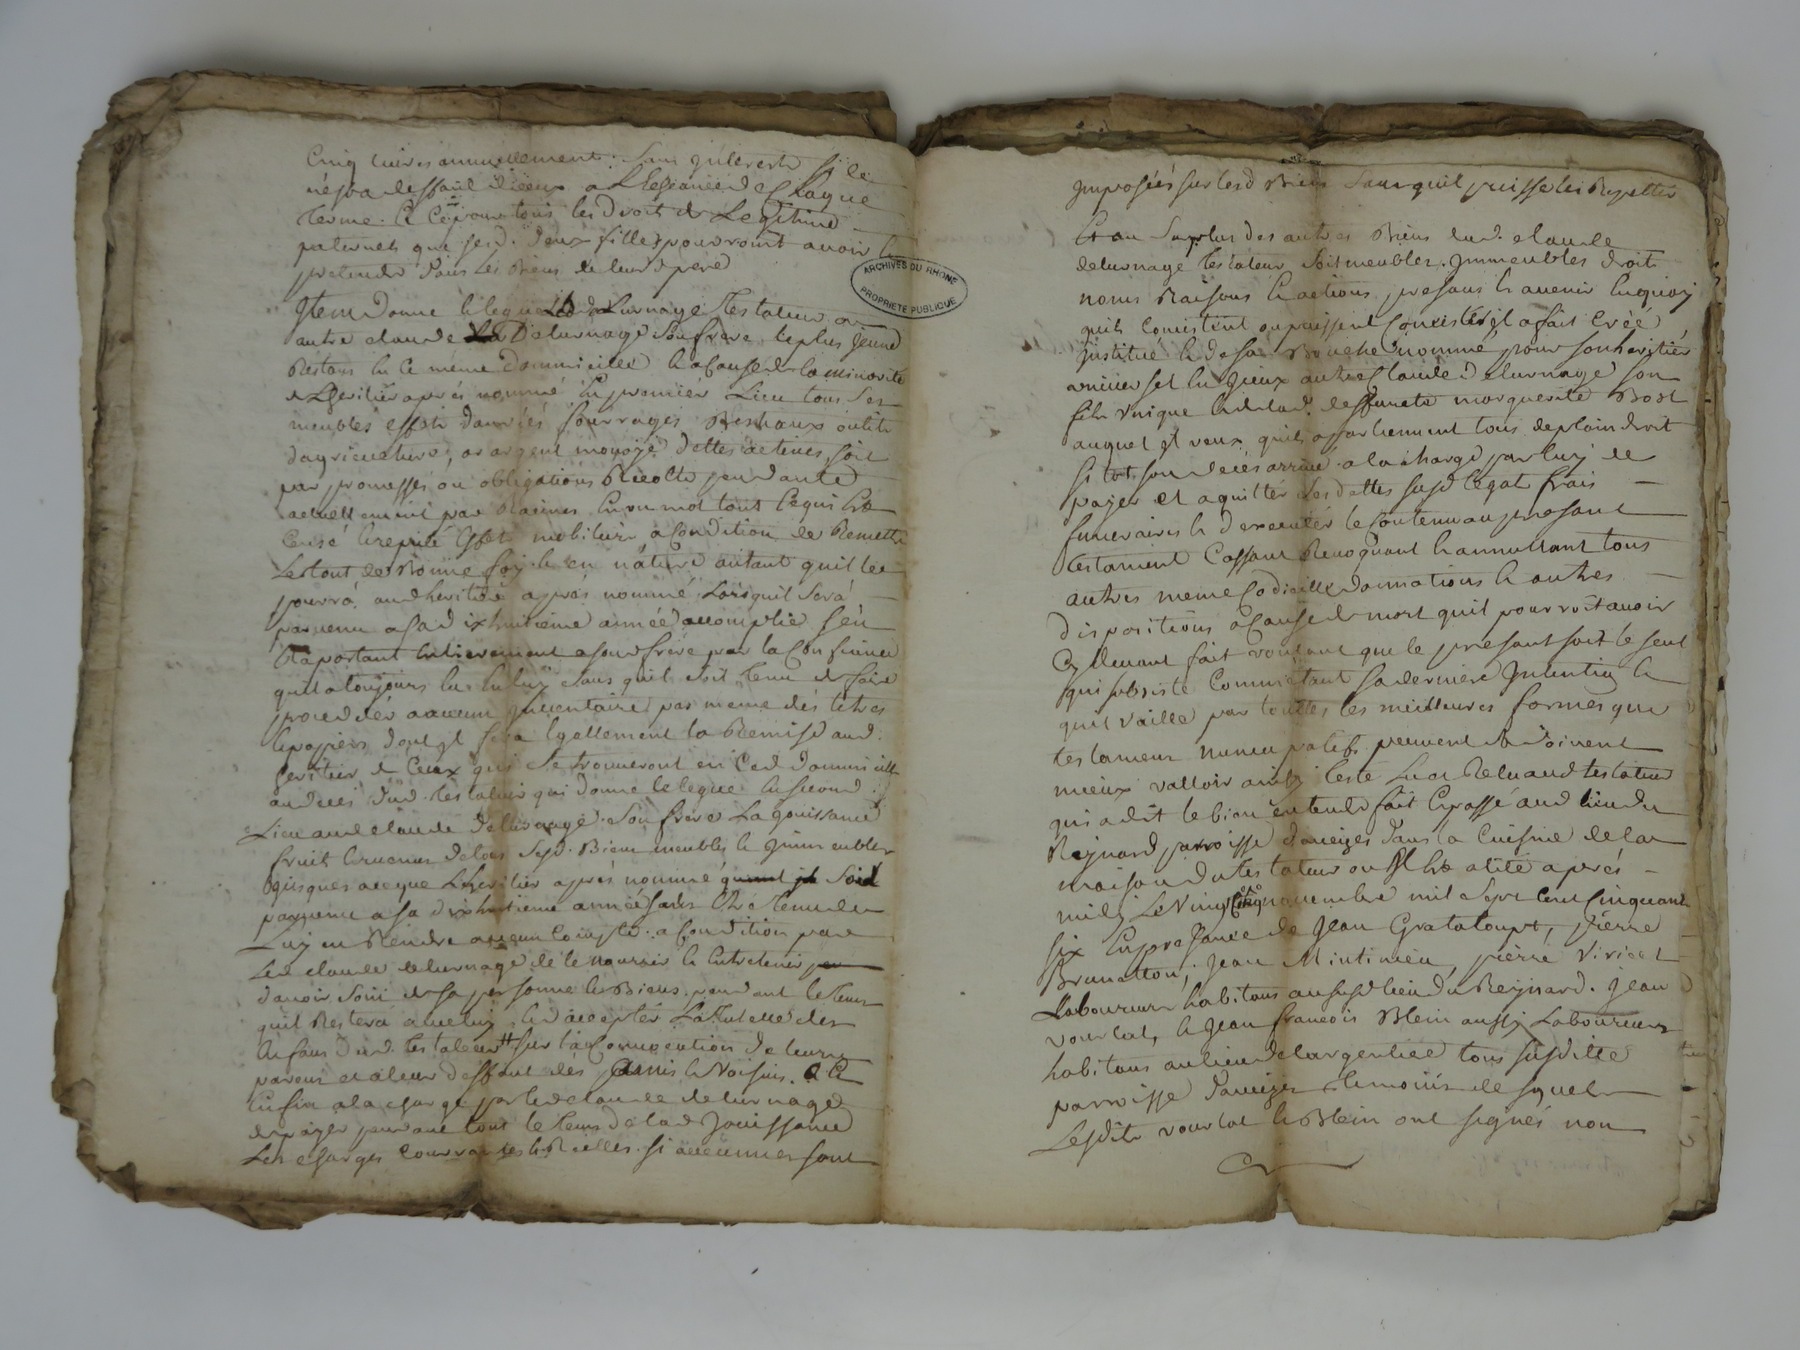 Cinq livres annuellement sans quil reste si le
deffaud diceux a L'Echéance de Chaque
Terme. & Ce pour tous les Droit de Legitime
paternels que sesd. deux filles pourroint avoir &
pretendre dans les Biens de leurd pere
Item donne & legue Led Delurnage Testateur a
autre claude Delurnage Son frere le plus jeune
Restans en ce même dommicille & a Cause de la minorité
de Lheritier aprés nommé En premier Lieu tous Ses
meubles effets danrées fourrages Bestiaux outils
dagriculture, or argent monoyé dettes actives soit
par promesses ou obligations Récolte pendante
actuellement par Racines En un mot tout Cequi Est
Censé & reputé Effets mobiliers a Condition de Remettre
Le tout de Bonne foy & en nature autant quil le
pourra aud heritier aprés nommé Lorsquil Sera
parvenu a Sa dixhuitieme année accomplie S'en
Raportant Entierement a Sond frere par la Confience
quil a toujours Eu En luy Sans quil Soit Tenu de faire
proceder a aucun Inventaire pas meme des titres
& papiers dont il fera Egallement la Remise aud.
heritier de Ceux qui Se trouveront en Ced dommicille
au deces dud. testateur qui donne & legue En Second
Lieu aud claude Delurnage Son frere La jouissance
fruits & revenus de tous Sesd. Biens meubles & immeubles
jusques a ceque Lheritier aprés nommé Soit
parvenu a Sa dixhuitieme année Sans Etre Tenu de
Luy en Rendre aucun Compte a Condition par
Led claude delurnage de le nourrir & Entretenir
davoir Soin de Sa personne & Biens pendant le tems
quil Restera avec luy & daccepter La Tutelle des
Enfans dud. testateur Sur la Convocation de leurs
parens et a leur deffaut des amis & Voisins. & Ce
Enfin a la charge par led claude delurnage
de payer pendant tout le tems de lad Jouissance
Les charges courrantes & Réelles Si aucunes Sont
Imposées sur lesd Biens Sans quil puisse les Repetter
Et au Surplus des autres Biens dud. claude
delurnage testateur Soit meubles. Immeubles droits
noms Raisons & actions, presans & avenir En quoy
quils Consistent ou puissent Consister il a fait Créé
Institué & de Sa Bouche nommé pour Son heritier
universel En Iceux autre Claude delurnage Son
fils Vnique & de lad. deffunte marguerite Bost
auquel Il veux quils appartiennent tous de plain droit
Si tot Son décés arrivé a la charge par luy de
payer et aquitter Les dettes susd legats frais
funeraires & dexecuter le Contenu au presant
testament Cassant Revoquant & annullant tous
autres meme Codicille donnations & autres
dispositions a Cause de mort quil pourroit avoir
Cy devant fait voulant que le presant soit le seul
qui subsiste Comme etant Sa derniere Intention &
quil vaille par touttes les meilleures formes que
testamens nuncupatifs peuvent & doivent
mieux valloir
qui a dit le bien entendre fait & passé aud lieu du
Reynard parroisse d'aveizes dans la Cuisine de la
maison du testateur ou Il Est alité aprés
midy Le Vingt Cinq novembre mil Sept Cent Cinquante
Six En presance de Jean Grataloupt, pierre
Brunatton, Jean Mintinieu, pierre Viricel
Laboureurs habitans au susd lieu du Reynard. Jean
vourlat, & Jean francois Blein aussy Laboureurs
habitans au lieu de largentiée tous Susditte
parroisse d'aveizes Temoins de Squels
Lesdits vourlat & Blein ont Signés non
ARCHIVES DU RHÔNE
PROPRIÉTÉ PUBLIQUE